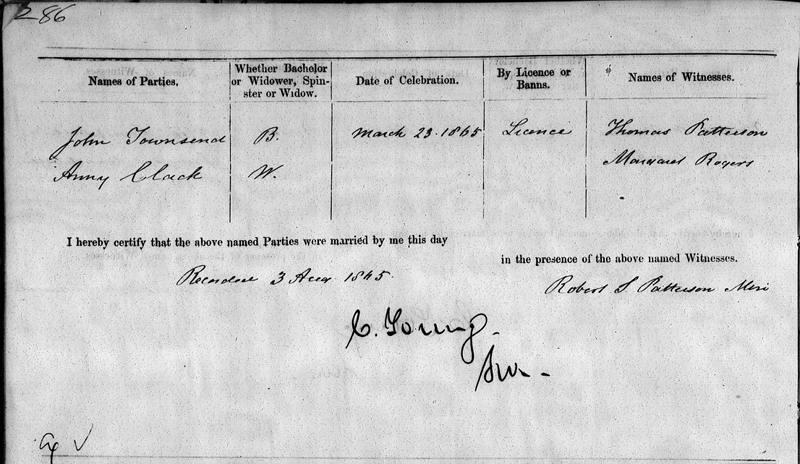 286
Names of Parties. Whether Bachelor or Widower, Spinster or Widow. Date of Celebration. By Licence or Banns. Names of Witnesses.
John Townsend B. March 23. 1865 Licence Thomas Patterson
Anny Clack W. Margaret Rogers
I hereby certify that the above named Parties were married by me this day
in the presence of the above named Witnesses.
Recorded 3 Aug 1865.
Robert S Patterson
C. Young.